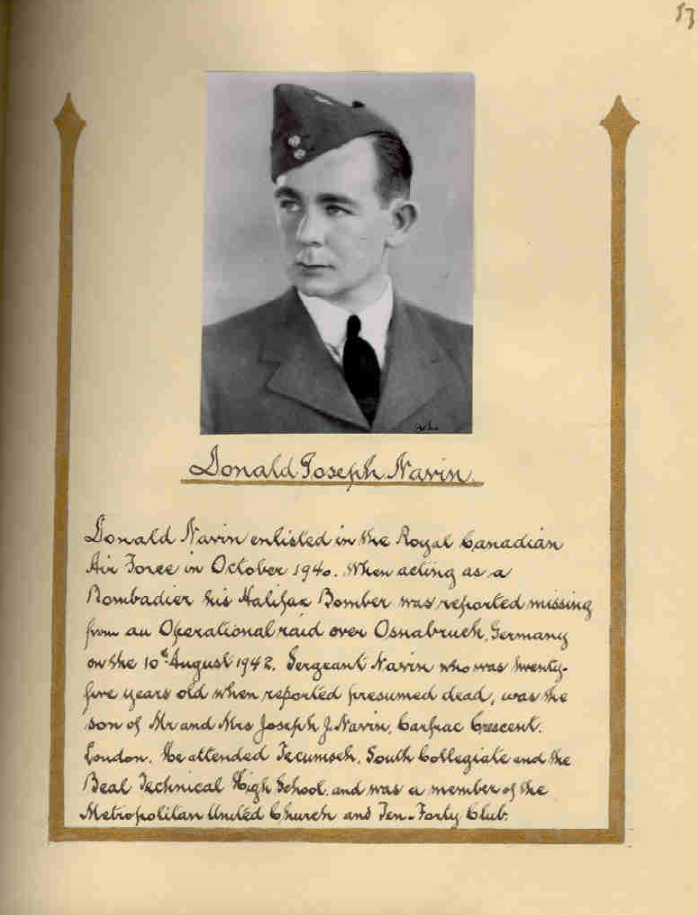 87
Donald Joseph Navin
Donald Navin enlisted in the Royal Canadian
Air Force in October 1940. When acting as a
Bombadier his Halifax Bomber was reported missing
from an Operational raid over Osnabruck, Germany
on the 10th August 1942. Sergeant Navin who was twenty-
five years old when reported presumed dead, was the
son of Mr and Mrs Joseph J. Navin, Carfrae Crescent.
London. He attended Tecumseh, South Collegiate and the
Beal Technical High School, and was a member of the
Metropolitan United Church and Ten-Forty Club.